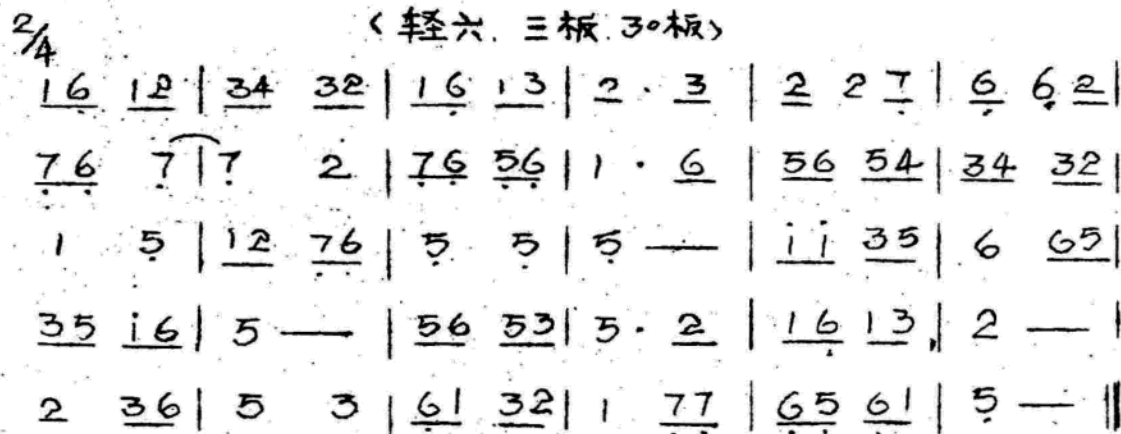 2/4 〈轻六.三板.30板〉
1 6̣ 1 2 | 3 4 3 2 | 1 6̣ 1 3 | 2 · 3 | 2 2 7̣ | 6̣ 6̣ 2 |
7̣ 6̣ 7̣ | 7̣ 2 | 7̣ 6̣ 5̣ 6̣ | 1 · 6 | 5 6 5 4 | 3 4 3 2 |
1 5̣ | 1 2 7̣ 6̣ | 5̣ 5̣ | 5̣ — | i i 3 5 | 6 6 5 |
3 5 i 6 | 5 — | 5 6 5 3 | 5 · 2 | 1 6̣ 1 3 | 2 — |
2 3 6 | 5 3 | 6̣ 1 3 2 | 1 7̣ 7̣ | 6̣ 5̣ 6̣ 1 | 5̣ — ‖